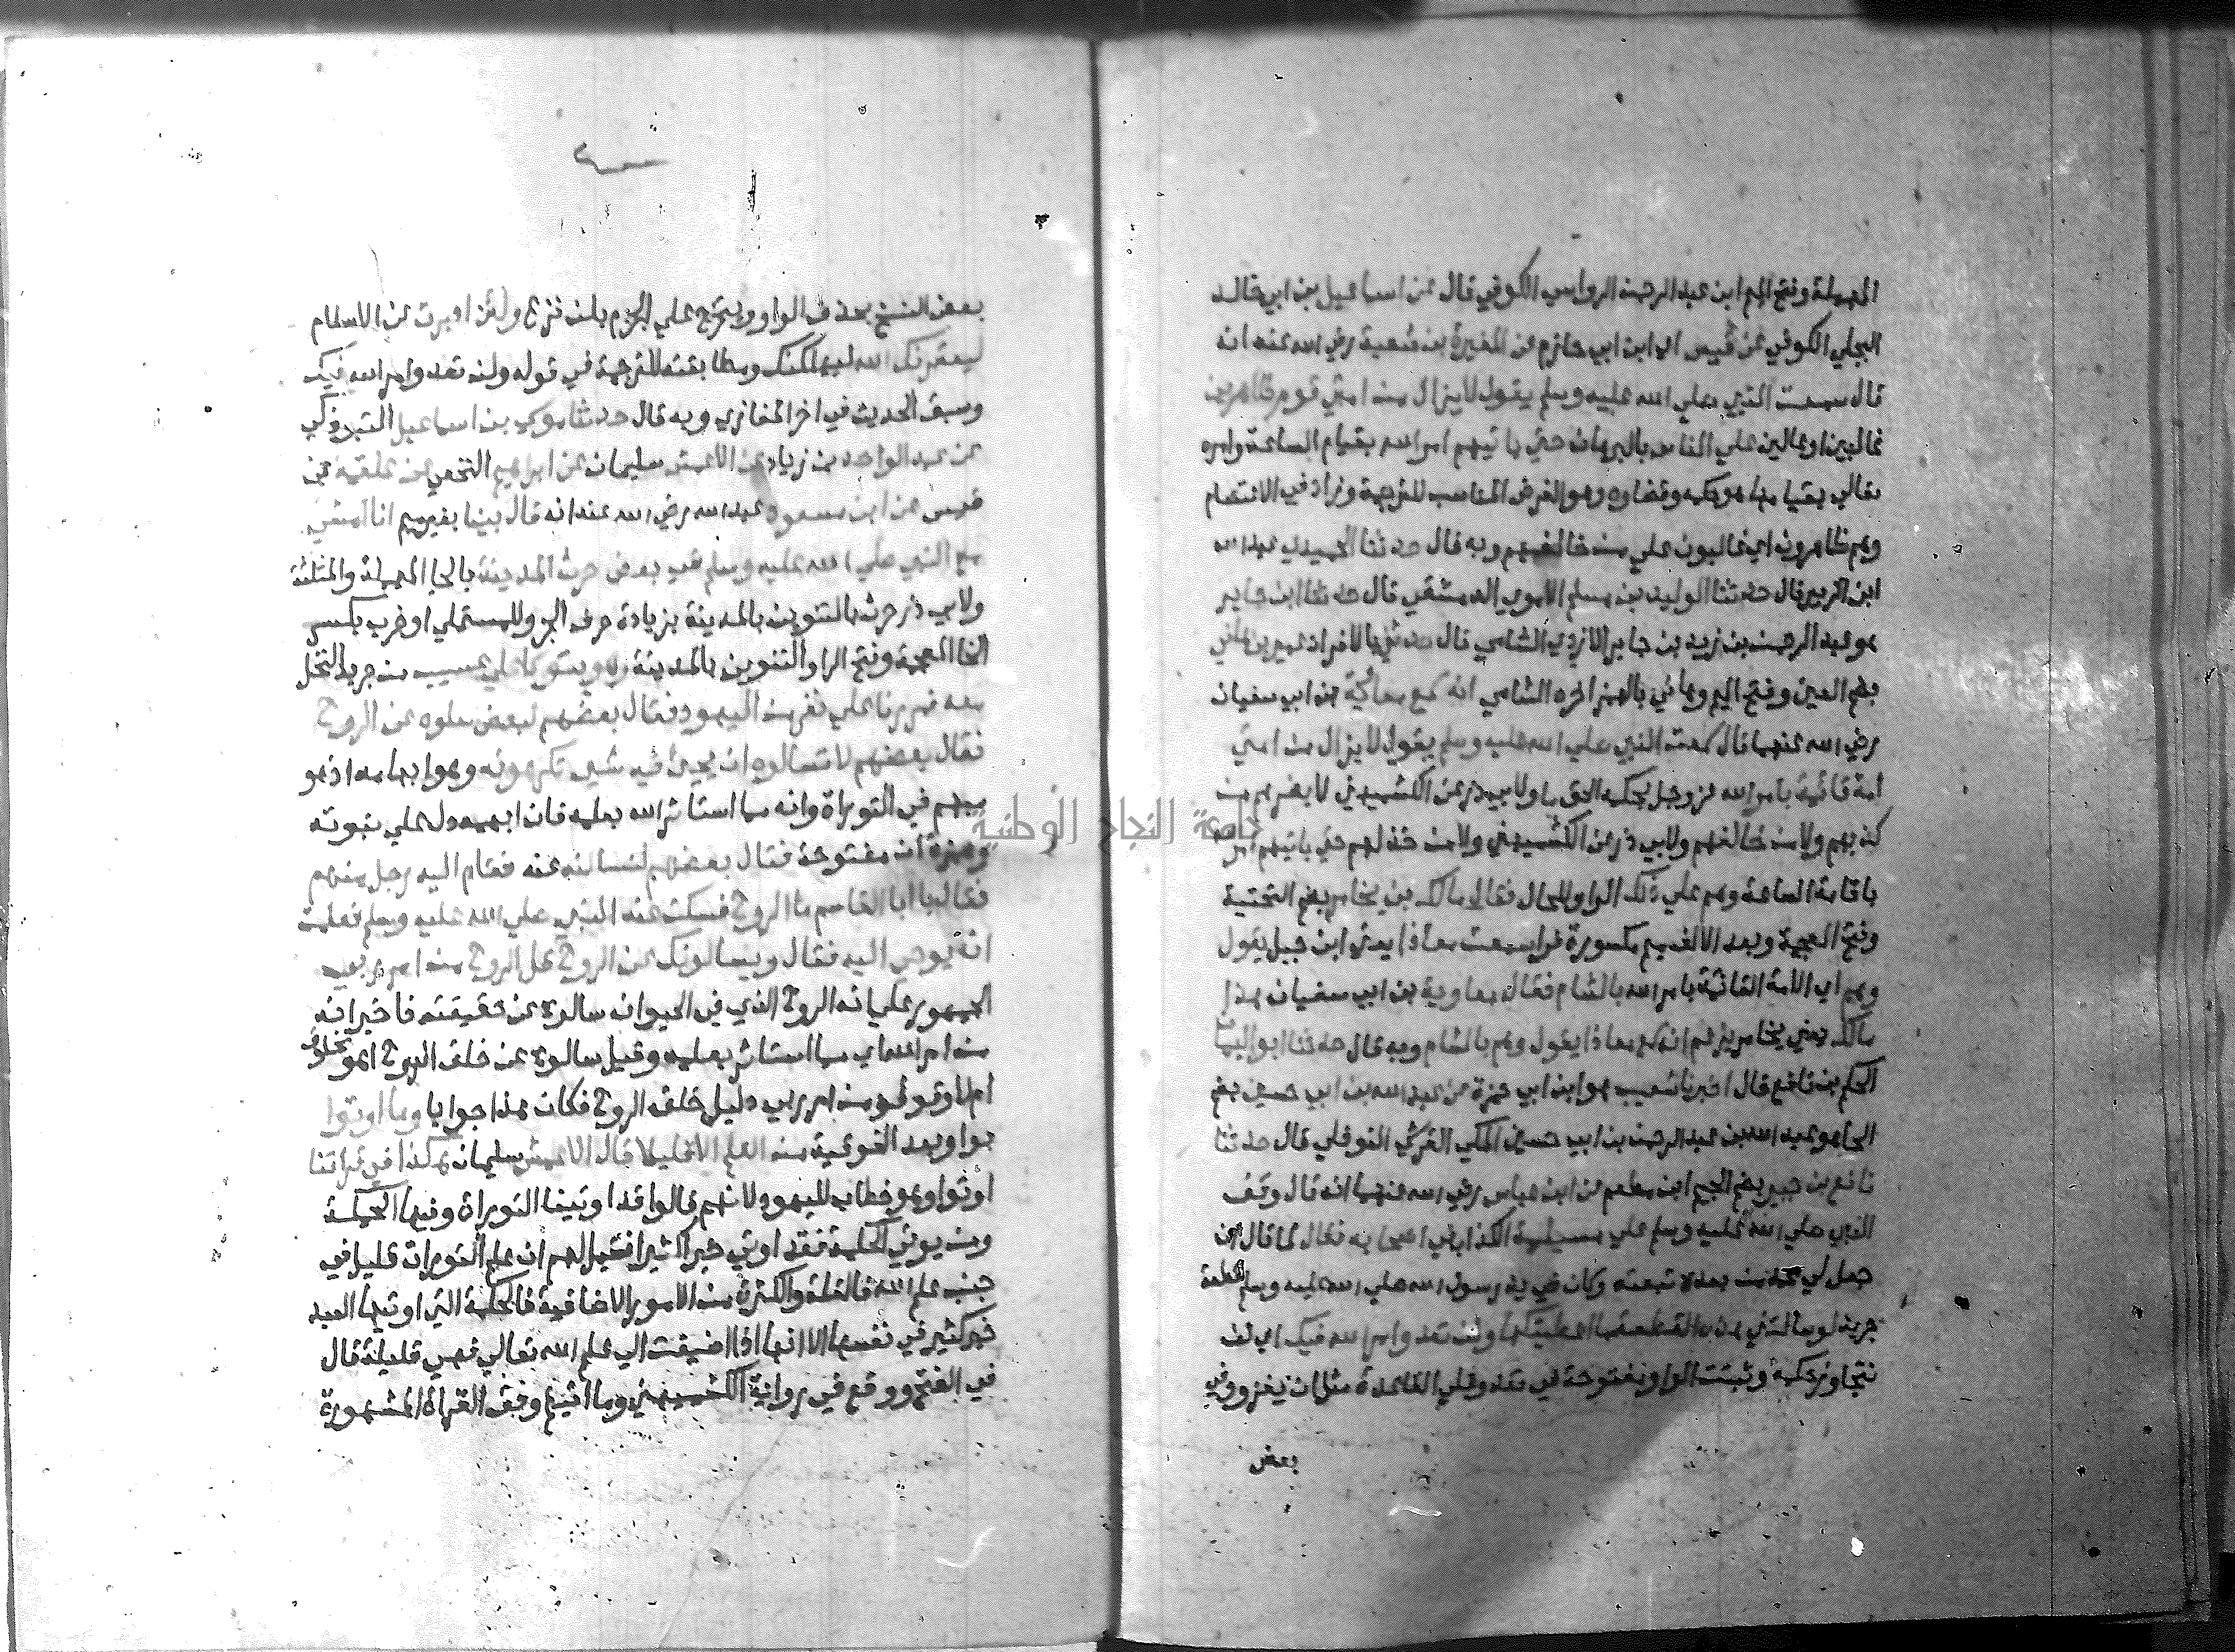 المهملة وفتح الميم ابن عبد الرحمن الرواسي الكوفي قال عن اسماعيل بن ابي خالد
البجلي الكوفي عن قيس اي ابن ابي حازم عن المغيرة بن شعبة رضي الله عنه انه
قال سمعت النبي صلي الله عليه وسلم يقول لا يزال من امتي قوم ظاهرين
غالبين او عالين علي الناس بالبرهان حتي ياتيهم امر الله بقيام الساعة وامره
تعالي بقيامها هو حكمه وقضاوه وهو الغرض المناسب للترجمة وزاد في الاعتصام
وهم ظاهرون اي غالبون علي من خالفهم وبه قال حدثنا الحميدي عبد الله
ابن الزبير قال حدثنا الوليد بن مسلم الاموي الدمشقي قال حدثنا ابن جابر
هو عبد الرحمن بن يزيد بن جابر الازدي الشامي قال حدثني بالافراد عمير بن هاني
بضم العين وفتح الميم وهاني بالهمز اخره الشامي انه سمع معاوية بن ابي سفيان
رضي الله عنهما قال سمعت النبي صلي الله عليه وسلم يقول لا يزال من امتي
امة قائمة بامر الله عز وجل بحكمه الحق ما ولابي ذر عن الكشميهني لا يضرهم من
كذبهم ولا من خالفهم ولابي ذر عن الكشميهني ولا من خذلهم حتي ياتيهم امر
باقامة الساعة وهم علي ذلك الواو للحال فقال مالك بن يخامر بضم التحتية
وفتح المعجمة وبعد الالف ميم مكسورة فرا سمعت معاذا يعني ابن جبل يقول
وهم اي الامة القائمة بامر الله بالشام فقال معاوية بن ابي سفيان هذا
مالك يعني يخامر يزعم انه سمع معاذا يقول وهم بالشام وبه قال حدثنا ابو اليمان
الحكم بن نافع قال اخبرنا شعيب هو ابن ابي حمزة عن عبد الله بن ابي حسين بضم
الحا هو عبد الله بن عبد الرحمن بن ابي حسين المكي القرشي النوفلي قال حدثنا
نافع بن جبير بضم الجيم ابن مطعم عن ابن عباس رضي الله عنهما انه قال وقف
النبي صلي الله عليه وسلم علي مسيلمة الكذاب في اصحابه فقال لما قال ان
جعل لي محمد من بعده تبعته وكان في يد رسول الله صلي الله عليه وسلم قطعة
جريد لو سالتني هذه القطعة ما اعطيتكها ولن تعدو امر الله فيك اي لن
تتجاوز حكمه وثبتت الواو مفتوحة في تعدو علي القاعدة مثل ان يغزو وفي
بعض
بعض النسخ بحذف الواو ويتخرج علي الجزم بلن نزع ولئن ادبرت عن الاسلام
ليعقرنك الله ليهلكنك ومطابقته للترجمة في قوله ولن تعدو امر الله فيك
وسبق الحديث في اخر المغازي وبه قال حدثنا موسي بن اسماعيل التبوذكي
عن عبد الواحد بن زياد عن الاعمش سليمان عن ابراهيم النخعي عن علقمة بن
قيس عن ابن مسعود عبد الله رضي الله عنه انه قال بينا بغير ميم انا امشي
مع النبي صلي الله عليه وسلم في بعض حرث المدينة بالحا المهملة والمثلثة
ولابي ذر حرث بالتنوين بالمدينة بزيادة حرف الجر وللمستملي او خرب بكسر
الخا المعجمة وفتح الرا والتنوين بالمدينة وهو يتوكا علي عسيب من جريد النخل
معه فمررنا علي نفر من اليهود فقال بعضهم لبعض سلوه عن الروح
فقال بعضهم لا تسالوه ان يجيئ فيه بشي تكرهونه وهو ابهامه اذ هو
مبهم في التوراة وانه مما استاثر الله بعلمه فان ابهمه دل علي نبوته
وهمزة ان مفتوحة فقال بعضهم لنسالنه عنه فقام اليه رجل منهم
فقال يا ابا القاسم ما الروح فسكت عنه النبي صلي الله عليه وسلم فعلمت
انه يوحي اليه فقال ويسالونك عن الروح قل الروح من امر ربي
الجمهور علي انه الروح الذي في الحيوان سالوه عن حقيقته فاخبر انه
من امر الله اي مما استاثر بعلمه وقيل سالوه عن خلق الروح اهو مخلوق
ام لا وقوله من امر ربي دليل خلق الروح فكان هذا جوابا وما اوتوا
بواو بعد الفوقية من العلم الا قليلا قال الاعمش سليمان هكذا في قراتنا
اوتوا وهو خطاب لليهود لانهم قالوا قد اوتينا التوراة وفيها الحكمة
ومن يوتي الحكمة فقد اوتي خيرا كثيرا فقيل لهم ان علم التوراة قليل في
جنب علم الله فالقلة والكثرة من الامور الاضافية فالحكمة التي اوتيها العبد
خير كثير في نفسها الا انها اذا اضيفت الي علم الله تعالي فهي قليلة قال
في الفتح ووقع في رواية الكشميهني وما اوتيتم وفق القراة المشهورة
جامعة النجاح الوطنية